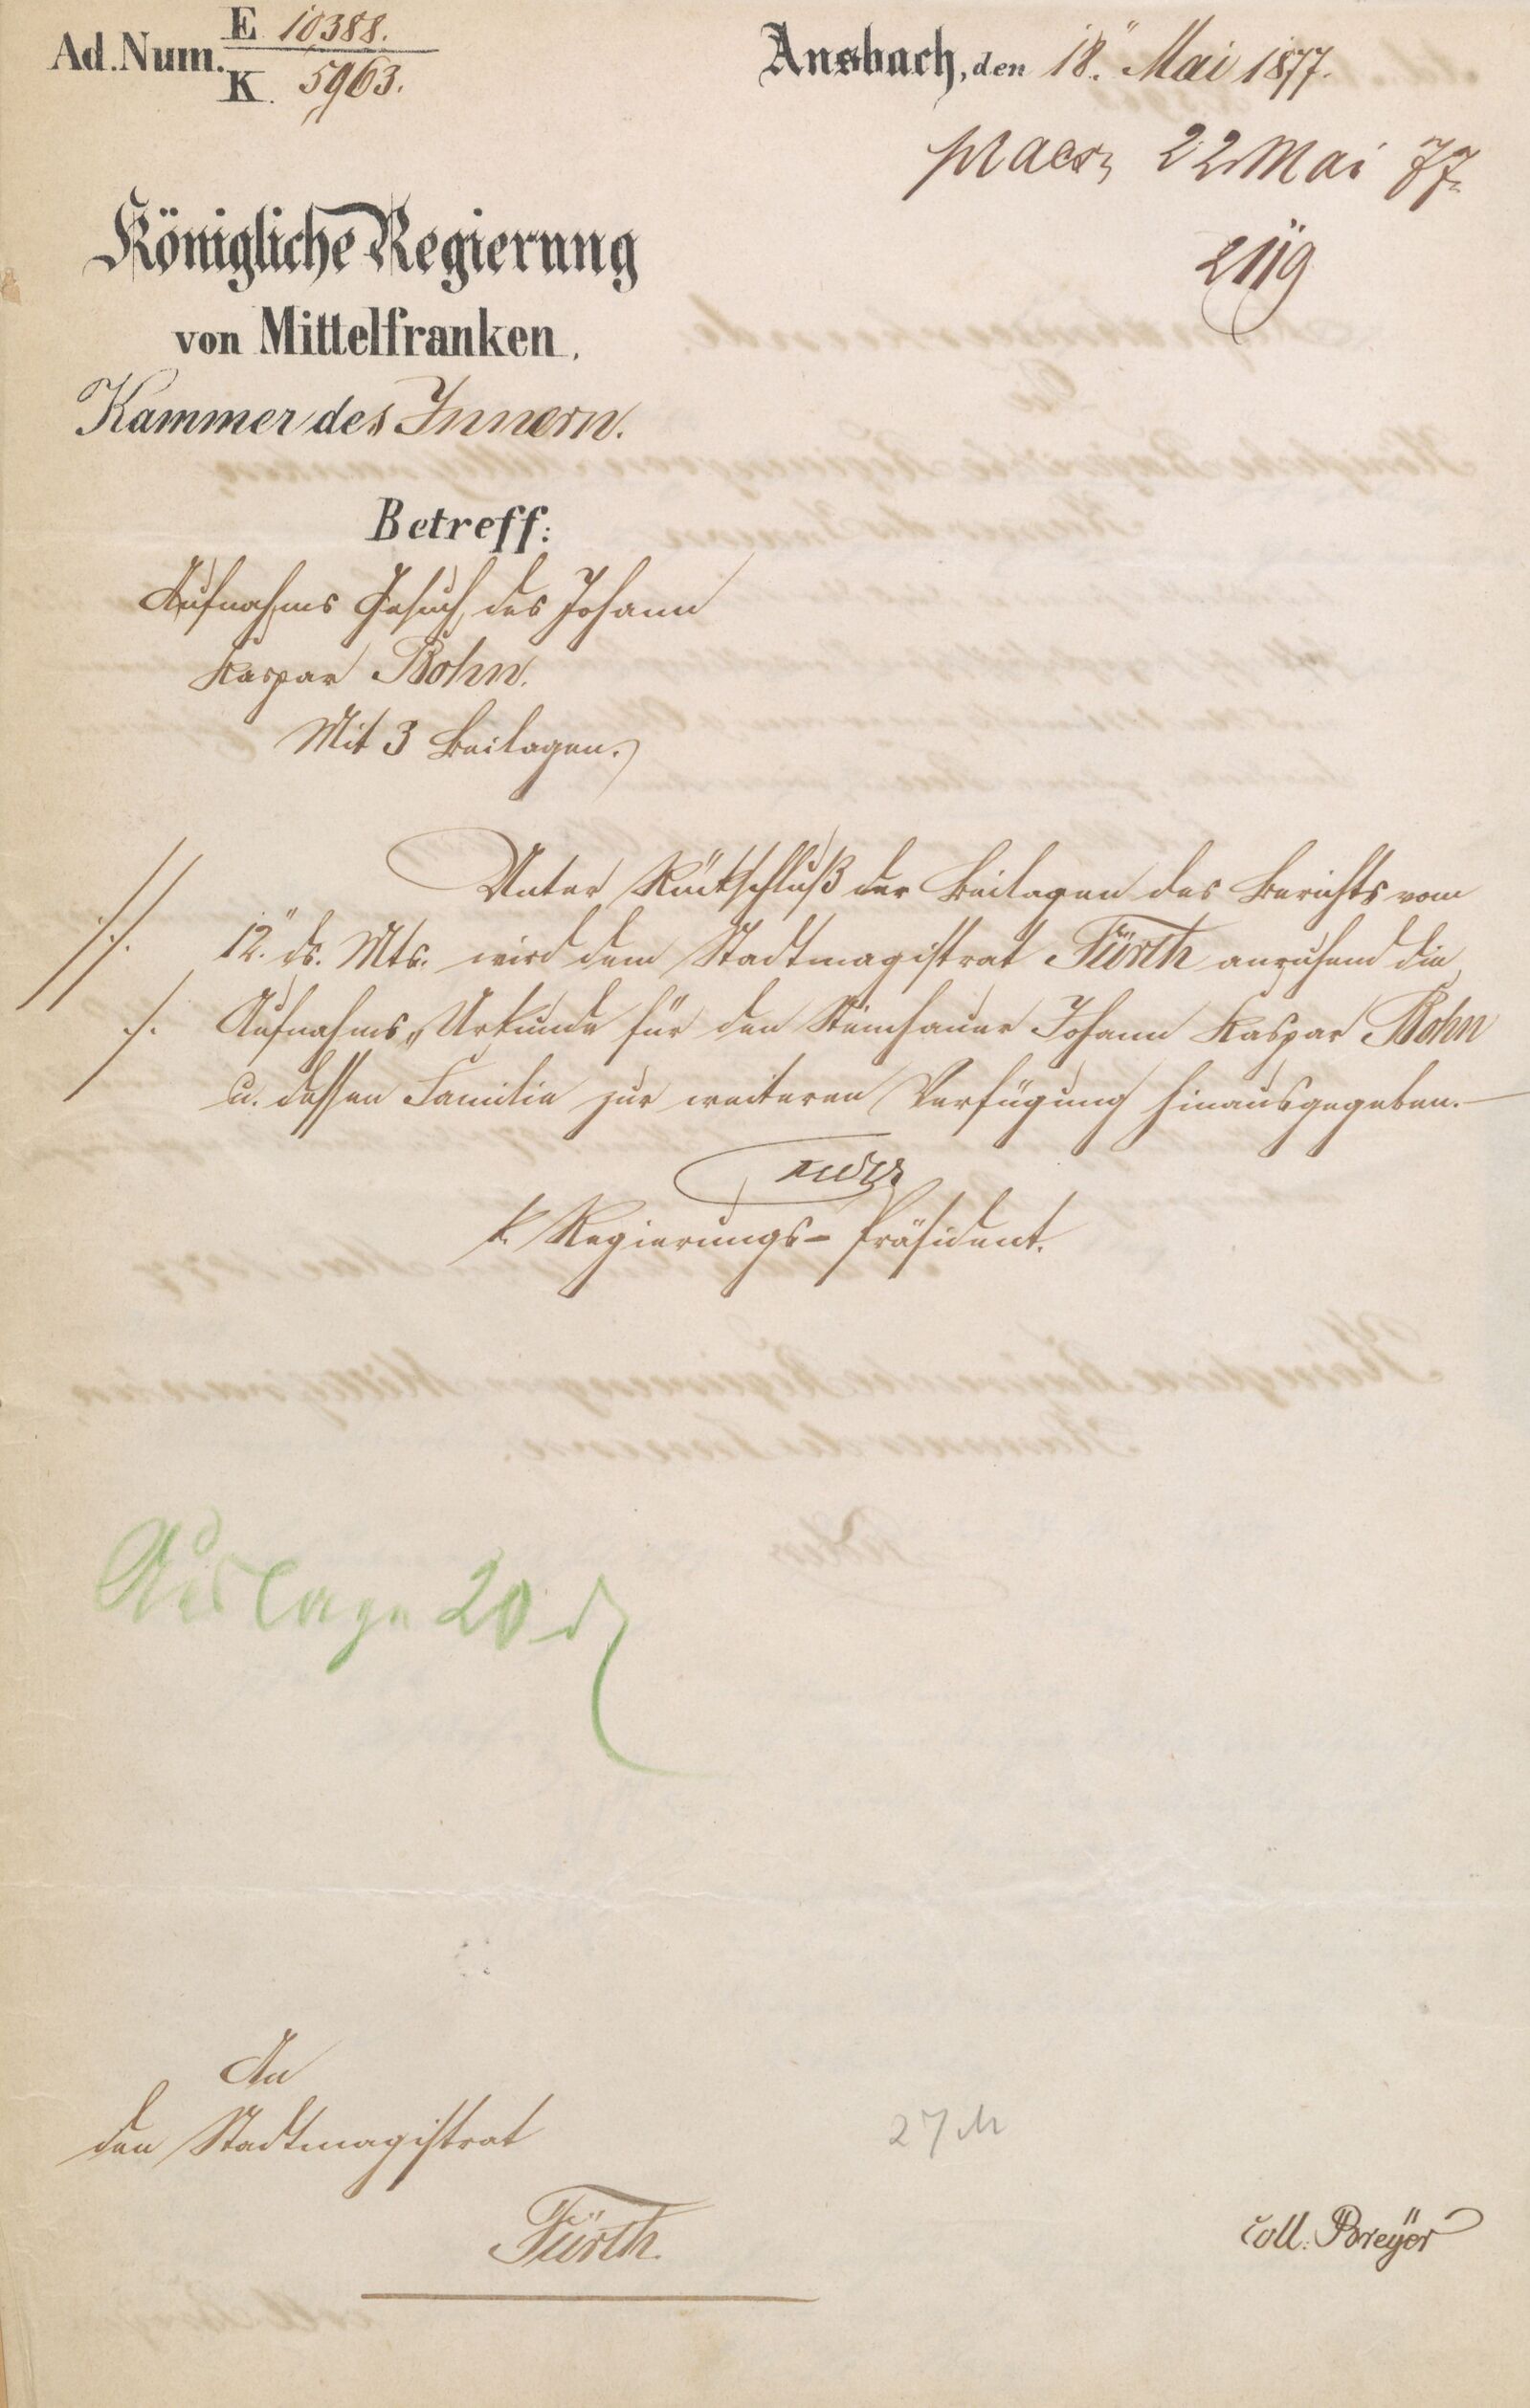 Ad. Num. E 10388.
K. 5963.
Ansbach, den 18." Mai 1877.
praes. 22 Mai 77.
2119
Königliche Regierung
von Mittelfranken,
Kammer des Innern.
Betreff:
Aufnahms Gesuch des Johann
Kaspar Bohn.
Mit 3 Beilagen.
Unter Rückschluß der Beilagen des Berichts vom
./. 12." ds. Mts. wird dem Stadtmagistrat Fürth anruhend die
./. Aufnahms-Urkunde für den Steinhauer Johann Kaspar Bohn
u. dessen Familie zur weiteren Verfügung hinausgegeben.
k. Regierungs-Präsident.
Auslage 20 d
An
den Stadtmagistrat
Fürth.
27 M
coll. Breÿer